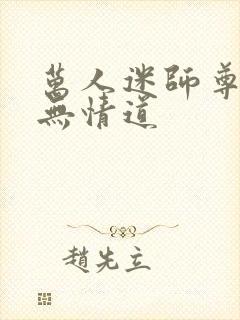 萬人迷師尊
無情道
趙先立